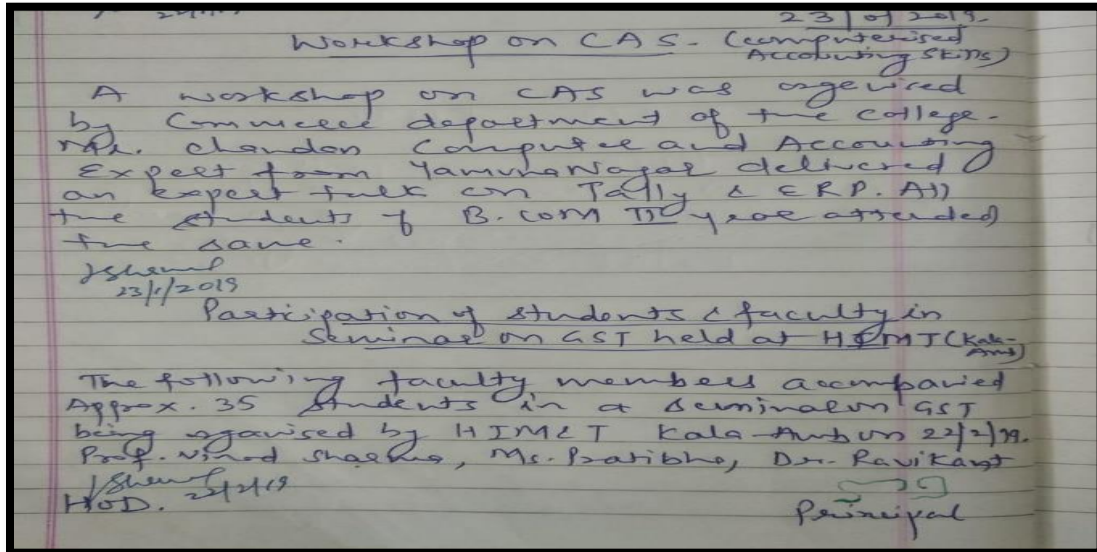 23/01/2019.
Workshop on CAS - (computerised
Accounting Skills)
A workshop on CAS was orgevised
by Commerce department of the college.
Mr. Chandan Computer and Accounting
Expert from YamunaNagar delivered
an Expert talk on Tally & ERP. All
the students of B.COM III year attended
the same.
23/1/2019
Participation of students & faculty in
Seminar on GST held at HIMT (Kala-
Amb)
The following faculty members accompanied
Approx. 35 Students in a Seminar on GST
being organised by HIM&T Kala-Amb on 22/2/19.
Prof. Vinod Sharma, Ms. Pratibha, Dr. Ravikant
22/2/19
HOD.
Principal